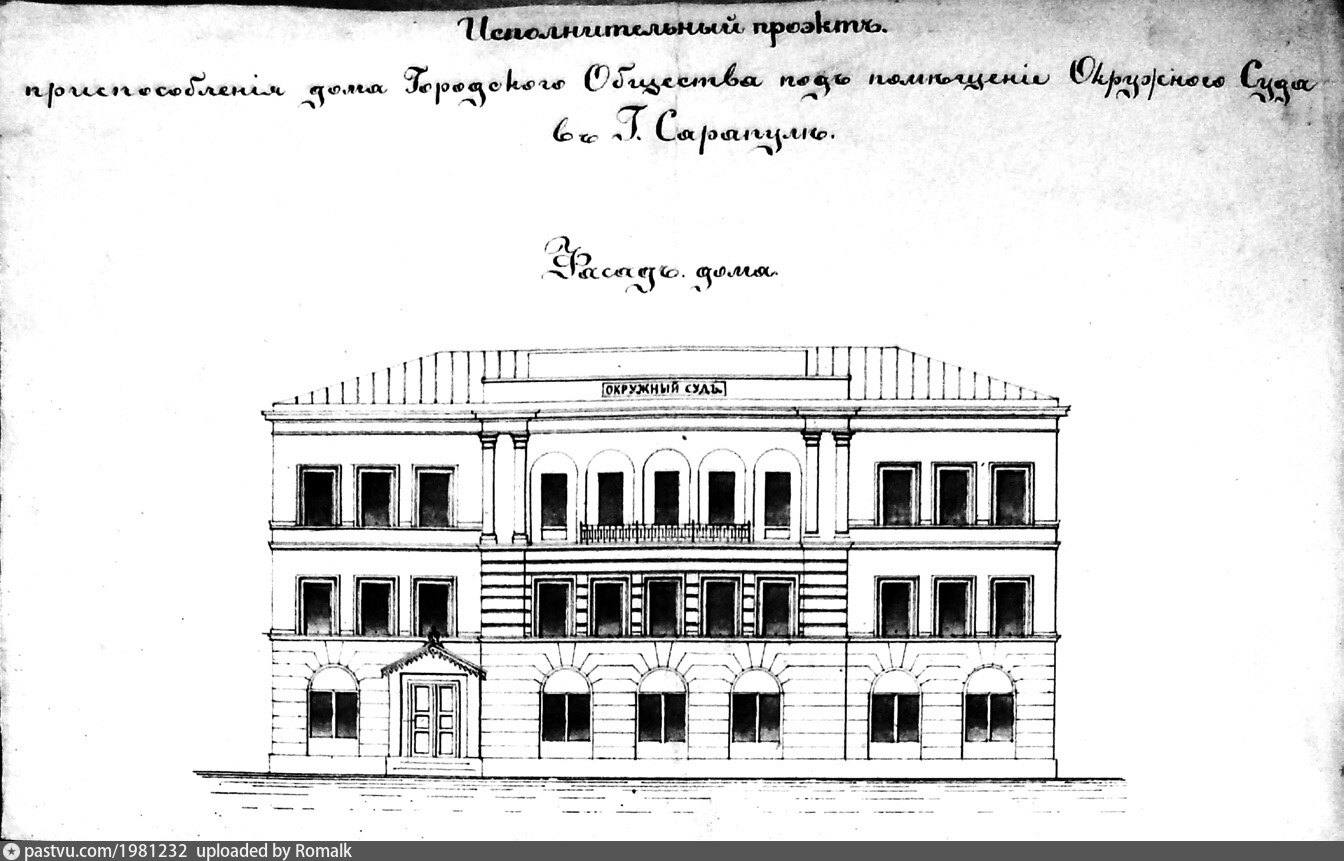 Исполнительный проэктъ.
приспособленія дома Городского Общества подъ помѣщеніе Окружного Суда
въ Г. Сарапулѣ.
Фасадъ. дома.
ОКРУЖНЫЙ СУДЪ.
pastvu.com/1981232 uploaded by Romalk